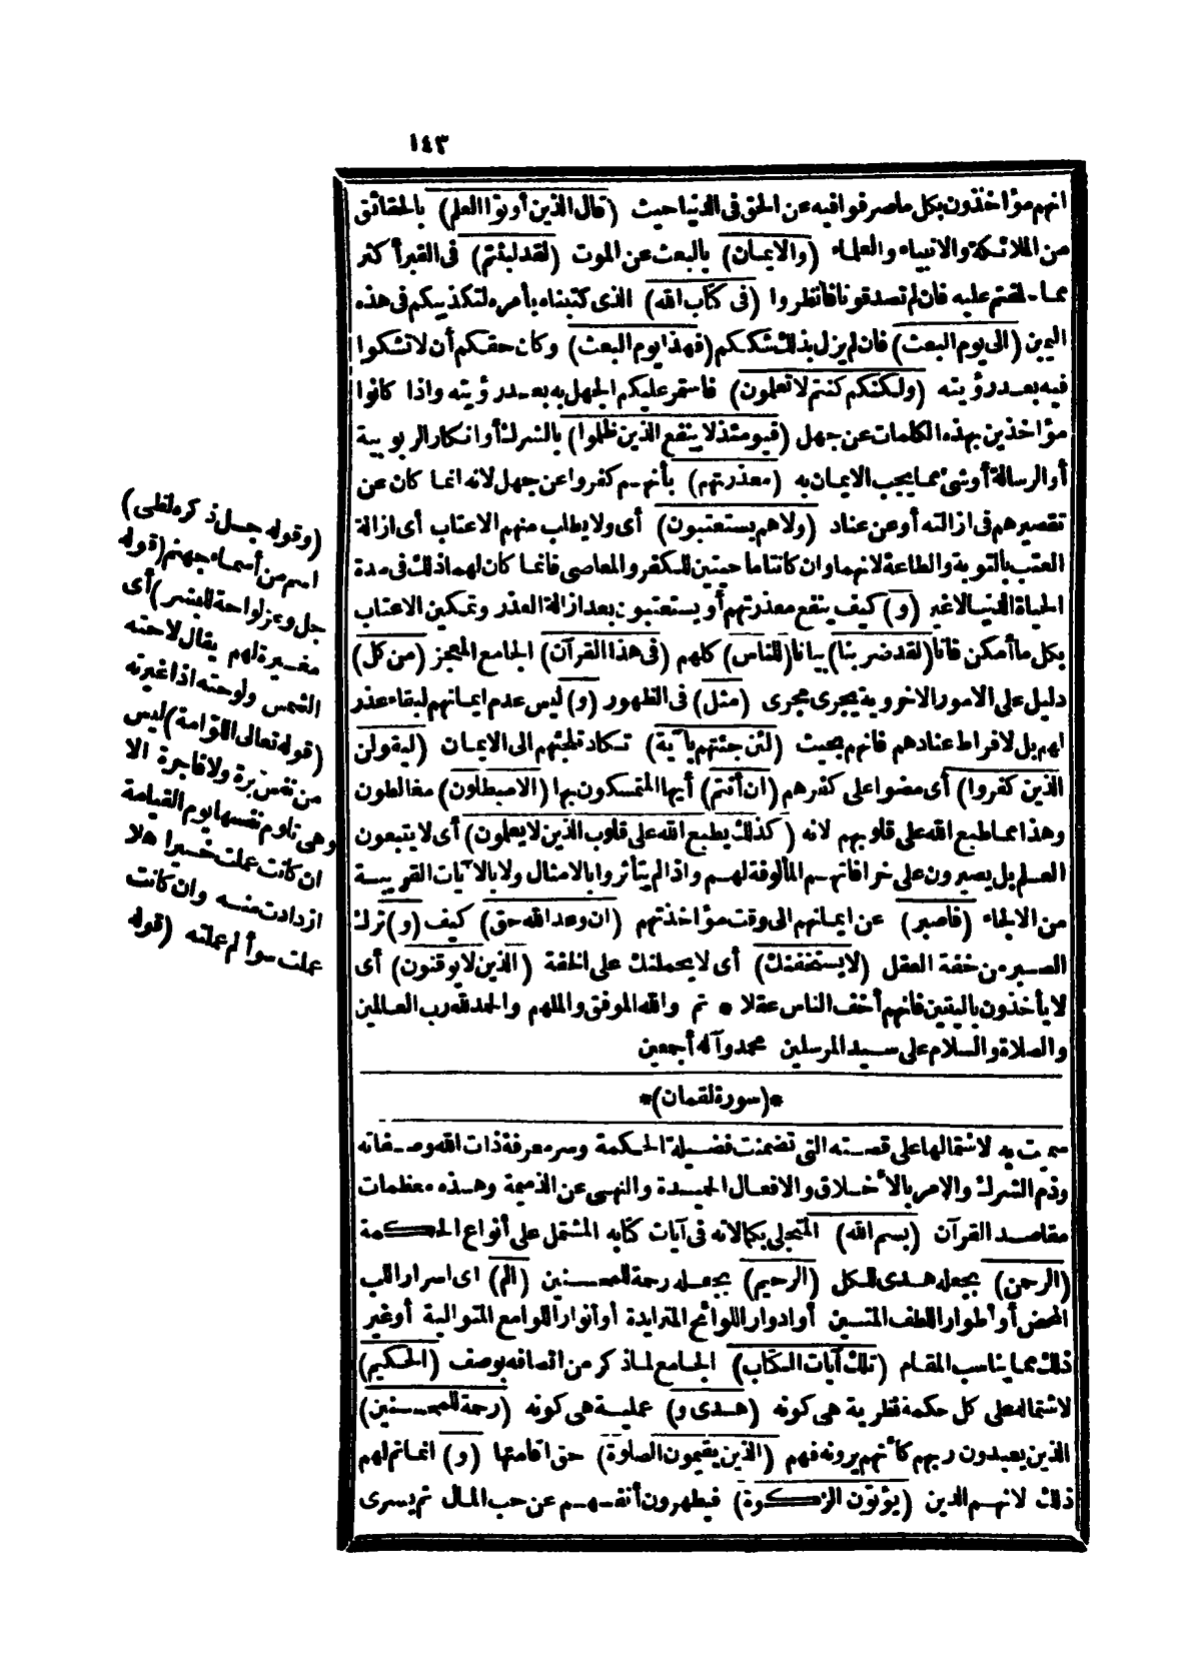 ١٤٣
انهم مؤاخذون بكل ماصرفوا فيه عن الحق فى الدنيا حيث (قال الذين أوتوا العلم) بالحقائق
من الملائكة والانبياء والعلماء (والايمان) بالبعث عن الموت (لقد لبثتم) فى القبر أكثر
مما حلفتم عليه فان لم تصدقونا فانظروا (فى كتاب الله) الذى كتبناه بأمره لتكذيبكم فى هذه
اليمين (الى يوم البعث) فان لم يزل بذلك شككم (فهذا يوم البعث) وكان حقكم أن لا تشكوا
فيه بعد رؤيته (ولكنكم كنتم لا تعلمون) فاستمر عليكم الجهل به بعد رؤيته واذا كانوا
مؤاخذين بهذه الكلمات عن جهل (فيومئذ لا ينفع الذين ظلموا) بالشرك أو انكار الربوبية
أو الرسالة أو شئ مما يجب الايمان به (معذرتهم) بأنهم كفروا عن جهل لانه انما كان عن
تقصيرهم فى ازالته أو عن عناد (ولا هم يستعتبون) أى ولا يطلب منهم الاعتاب أى ازالة
العتب بالتوبة والطاعة لانهما وان كانتا ماحيتين للكفر والمعاصى فانما كان لهما ذلك فى مدة
الحياة الدنيا لا غير (و) كيف ينفع معذرتهم أو يستعتبون بعد ازالة العذر وتمكين الاعتاب
بكل ما أمكن فانا (لقد ضربنا) بيانا (للناس) كلهم (فى هذا القرآن) الجامع المعجز (من كل)
دليل على الامور الاخروية يجرى مجرى (مثل) فى الظهور (و) ليس عدم ايمانهم لبقاء عذر
لهم بل لافراط عنادهم فانهم بحيث (لئن جئتهم بآية) تكاد تلجئهم الى الايمان (ليقولن
الذين كفروا) أى مضوا على كفرهم (ان أنتم) أيها المتمسكون بها (الا مبطلون) مغالطون
وهذا مما طبع الله على قلوبهم لانه (كذلك يطبع الله على قلوب الذين لا يعلمون) أى لا يتبعون
العلم بل يصرون على خرافاتهم المألوفة لهم واذا لم يتأثروا بالامثال ولا بالآيات القريبة
من الالجاء (فاصبر) عن ايمانهم الى وقت مؤاخذتهم (ان وعد الله حق) كيف (و) ترك
الصبر من خفة العقل (لا يستخفنك) أى لا يحملنك على الخفة (الذين لا يوقنون) أى
لا يأخذون باليقين فانهم أخف الناس عقلا * تم والله الموفق والملهم والحمد لله رب العالمين
والصلاة والسلام على سيد المرسلين محمد وآله أجمعين
*(سورة لقمان)*
سميت به لاشتمالها على قصته التى تضمنت فضيلة الحكمة وسر معرفة ذات الله وصفاته
وذم الشرك والامر بالأخلاق والافعال الحميدة والنهى عن الذميمة وهذه معظمات
مقاصد القرآن (بسم الله) المتجلى بكمالاته فى آيات كتابه المشتمل على أنواع الحكمة
(الرحمن) بجعله هدى للكل (الرحيم) بجعله رحمة للمحسنين (الم) اى اسرار اللب
المحض أو أطوار اللطف المتسين أو ادوار اللوائح المتزايدة أو أنوار اللوامع المتوالية أو غير
ذلك مما يناسب المقام (تلك آيات الكتاب) الجامع لما ذكر من اتصافه بوصف (الحكيم)
لاشتماله على كل حكمة نظرية هى كونه (هدى و) عملية هى كونه (رحمة للمحسنين)
الذين يعبدون ربهم كأنهم يرونه فهم (الذين يقيمون الصلوة) حق اقامتها (و) انما تم لهم
ذلك لانهم الذين (يؤتون الزكوة) فيطهرون أنفسهم عن حب المال ثم يسرى
(وقوله جل ذكره لظى)
اسم من أسماء جهنم (قوله
جل وعز لواحة للبشر) أى
مغيرة لهم يقال لاحته
الشمس ولوحته اذا غيرته
(قوله تعالى اللوامة) ليس
من نفس برة ولا فاجرة الا
وهى تلوم نفسها يوم القيامة
ان كانت عملت خيرا هلا
ازدادت منه وان كانت
عملت سوأ لم عملته (قوله